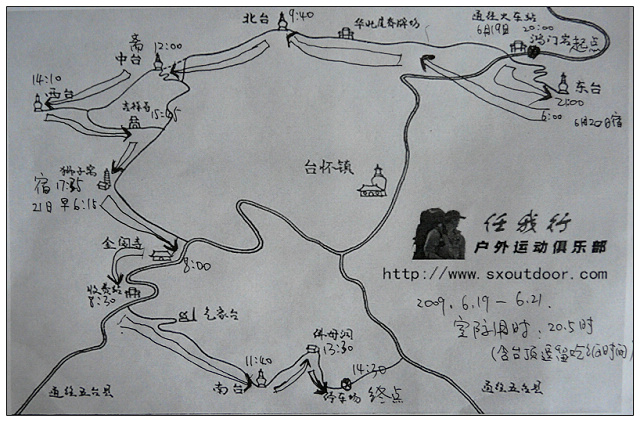 北台 9:40
华北屋脊牌坊
通往大车站
6月19日 20:00
鸿门岩 起点
斋
中台 12:00
14:10
西台
吉祥寺
15:05
东台
21:00
6:00 6月20日宿
狮子窝
宿 17:35
21日 早6:15
台怀镇
任我行
户外运动俱乐部
http://www.sxoutdoor.com
金阁寺
8:00
收费站
8:30
2009.6.19—6.21.
实际用时:20.5时
(含台顶逗留吃饭时间)
佛母洞
13:30
11:40
南台
14:30
停车场 终点
通往五台县
通往五台县